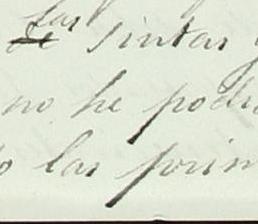 las
de sintas y
no he podi
o las prim